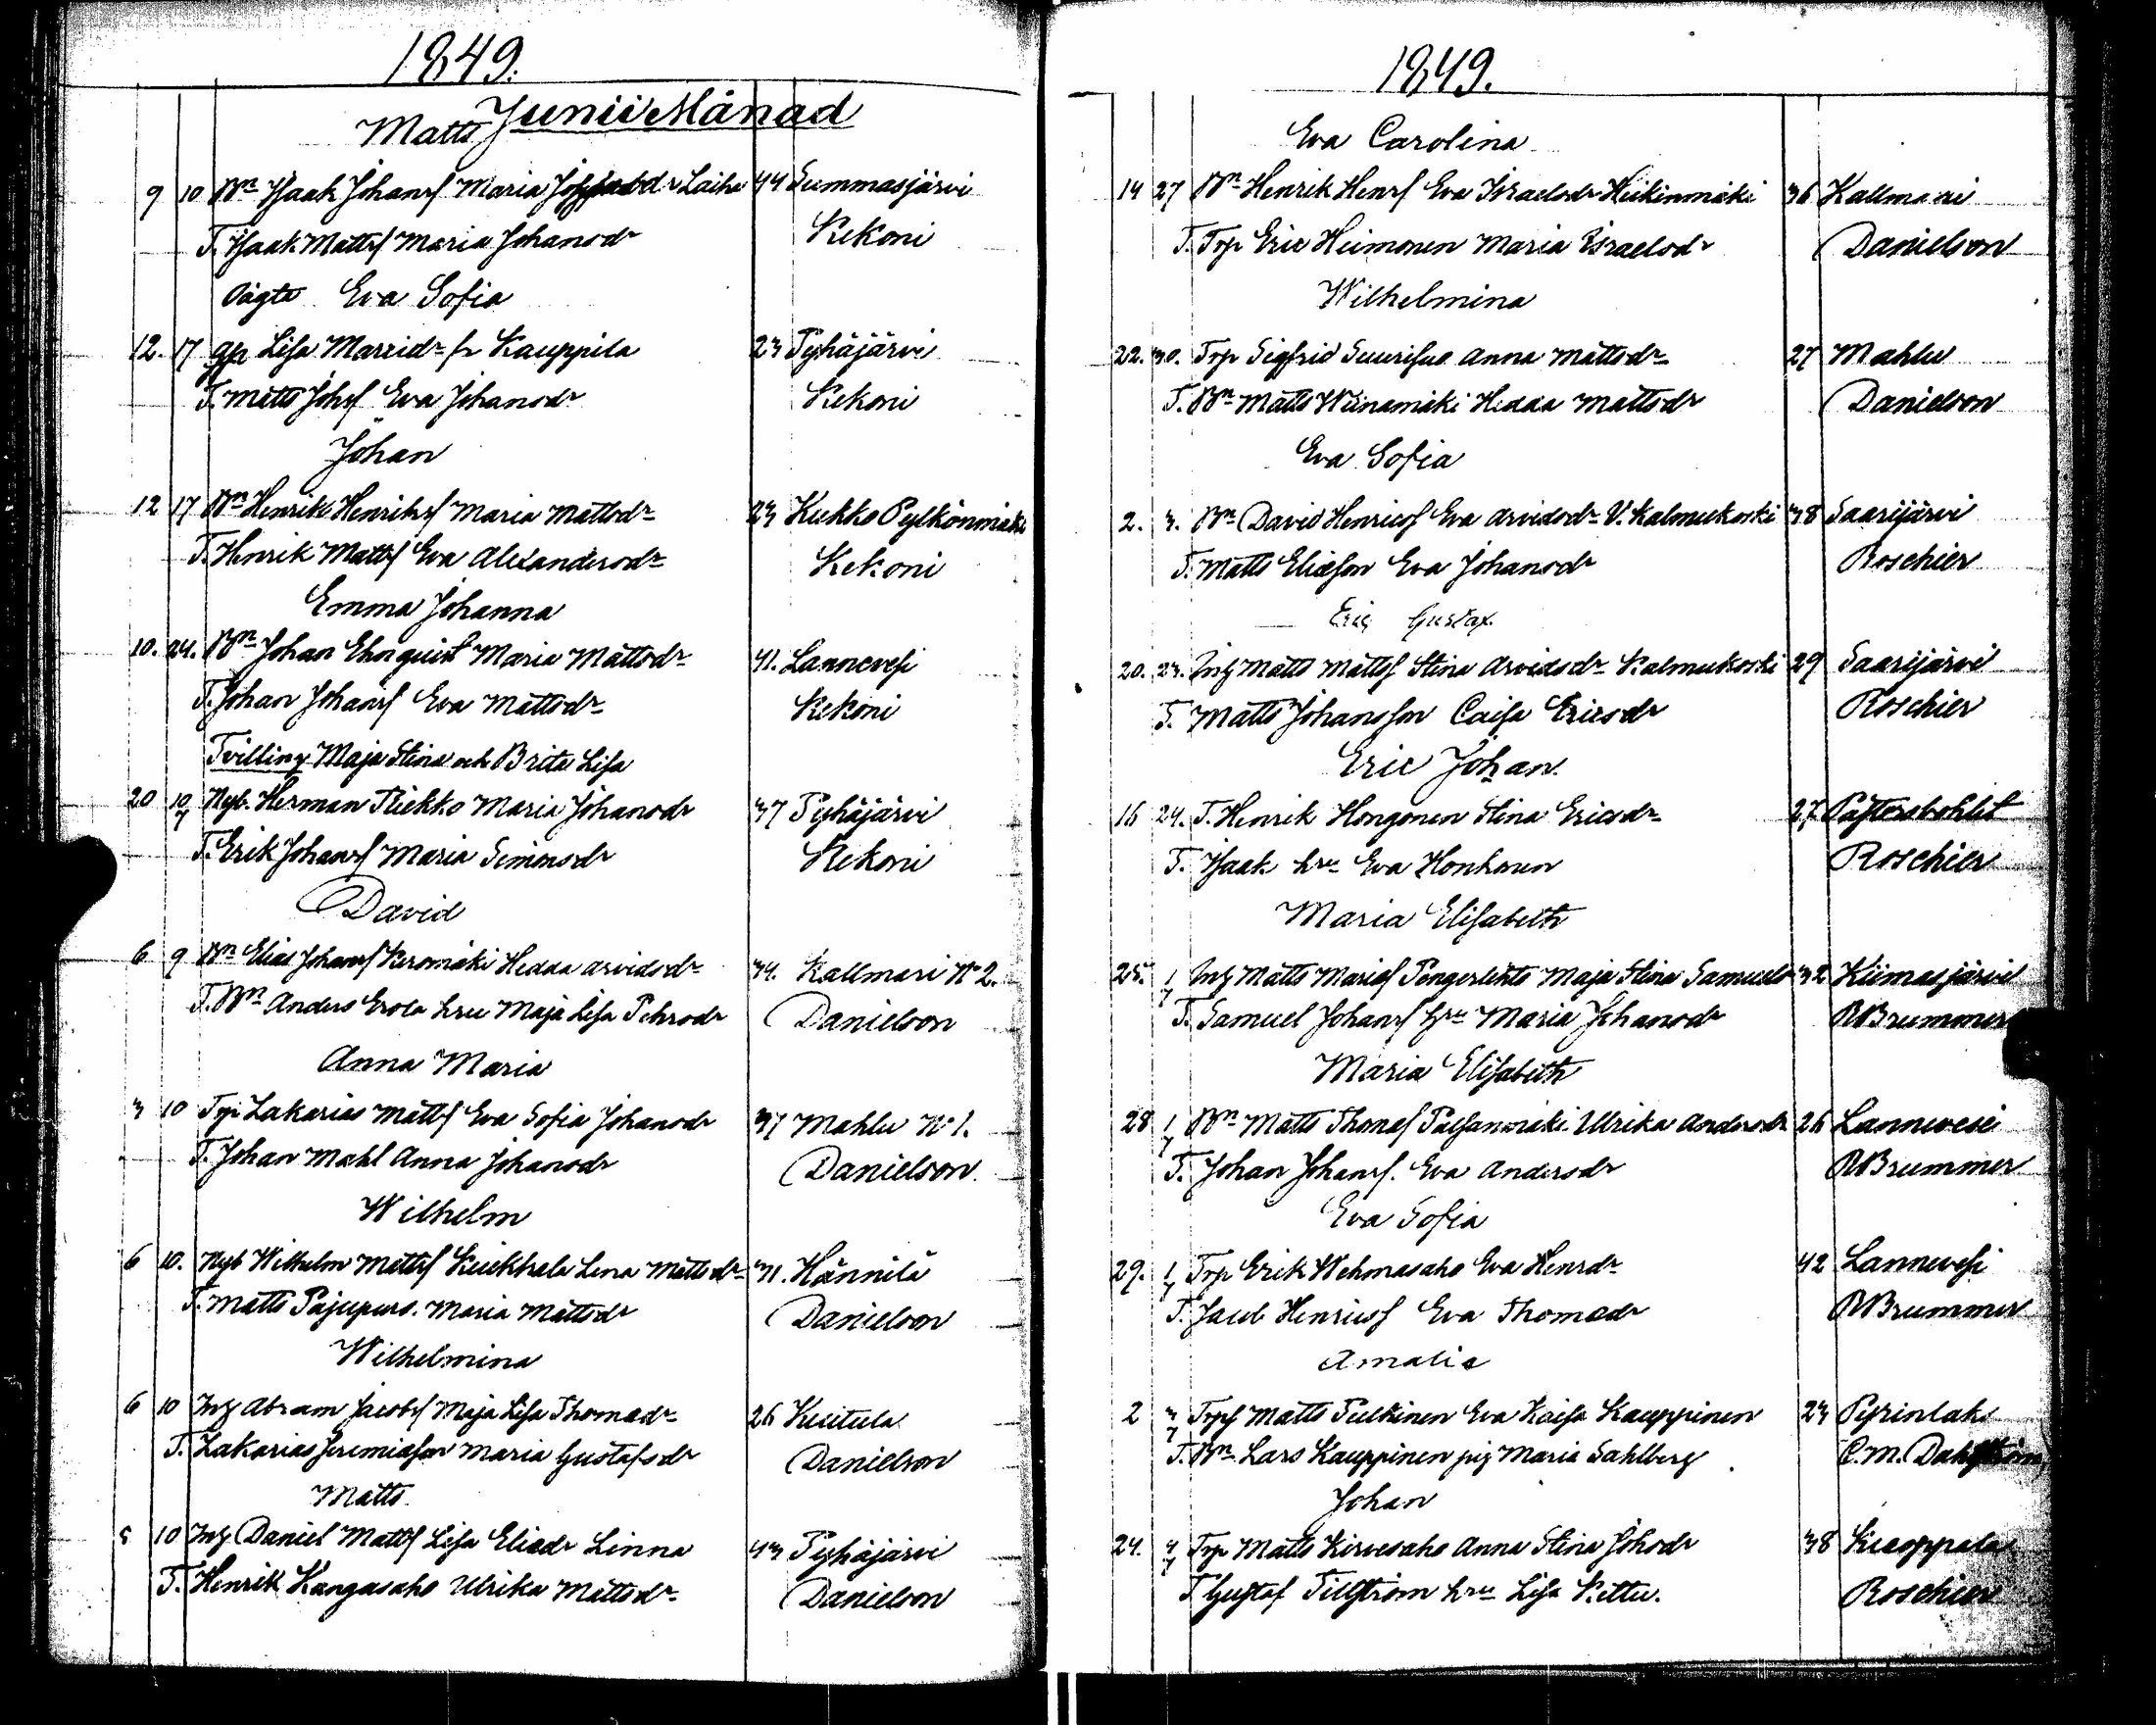 1849.
Junii Månad
Matts
9 10 Bn Isaak Johansf Maria Laiha 44 Summasjärvi
T. Isaak Mattsf Maria Johansdr Kekoni
Oägta Eva Sofia
12. 17 Lisa fr Kauppila 23 Pyhäjärvi
T. Matts Johsf Eva Johansdr Kekoni
Johan
12 17 Bn Henrik Henriksf Maria Mattsdr 23 Kukko Pylkönmäki
T. Henrik Mattsf Eva Alexandersdr Kekoni
Emma Johanna
10. 24. Bn Johan Ehnquist Maria Mattsdr 41. Lannevesi
T. Johan Johansf Eva Mattsdr Kekoni
Tvilling Maja Stina och Brita Lisa
20 10/7 Nyb. Herman Riekko Maria Johansdr 37 Pyhäjärvi
T. Erik Johansf Maria Simonsdr Kekoni
David
6 9 Bn Elias Johansf Keromäki Hedda Arvidsdr 34. Kallmari No 2.
T. Bn Anders Erola hru Maja Lisa Pehrsdr Danielson
Anna Maria
3 10 Trp Zakarias Mattsf Eva Sofia Johansdr 37 Mahlu No 1.
T. Johan Mahl Anna Johansdr Danielson
Wilhelm
6 10. Nyb Wilhelm Mattsf Kuikkala Lena Mattsdr 31. Hännilä
T. Matts Pajupuro. Maria Mattsdr Danielson
Wilhelmina
6 10 Ing Abram Jacobsf Maja Lisa Thomasdr 26 Kuitula
T. Zakarias Jeremiasson Maria Gustafsdr Danielson
Matts.
5 10 Ing Daniel Mattsf Lisa Eliedr Linna 43 Pyhäjärvi
T. Henrik Kangasaho Ulrika Mattsdr Danielson
1849.
Eva Carolina
14 27 Bn Henrik Henrsf Eva Israelsdr Heikinmäki 36 Kallmari
T. Trp Eric Heimonen Maria Israelsdr Danielson
Wilhelmina
22. 30. Trp Sigfrid Suurisuo Anna Mattsdr 27 Mahlu
T. Bn Matts Wiinamäki Hedda Mattsdr Danielson
Eva Sofia
2. 3. Bn David Henricsf Eva Arvidsdr V. Kalmukoski 38 Saarijärvi
T. Matts Eliasson Eva Johansdr Roschier
Eric Gustaf.
20. 23. Ing Matts Mattsf Stina Arvidsdr Kalmukoski 29 Saarijärvi
T. Matts Johansson Caisa Ericsdr Roschier
Eric Johan.
16 24. T. Henrik Hongonen Stina Ericsdr 27 Pastorsbohlet
T. Isaak hru Eva Honkonen Roschier
Maria Elisabeth
25. 1/7 Ing Matts Mariasf Pengerlehto Maja Stina Samuelsdr 32 Kiimasjärvi
T. Samuel Johansf hru Maria Johansdr RBrummer
Maria Elisabeth
28 1/7 Bn Matts Thomsf Ulrika Andersdr 26 Lannevesi
T. Johan Johansf. Eva Andersdr RBrummer
Eva Sofia
29. 1/7 Trp Erik Wehmasaho Eva Henrsdr 42 Lannevesi
T. Jacob Henricsf Eva Thomasdr RBrummer
Amalia
2 3/7 Matts Pulkinen Eva Kaisa Kauppinen 23 Pyrinlaks
T. Bn Lars Kauppinen pig Maria Sahlberg C. M. Dahlström
Johan
24. 4/7 Trp Matts Kirvesaho Anna Stina Johsdr 38 Kuoppala
T Gustaf hru Lisa Kettu. Roschier